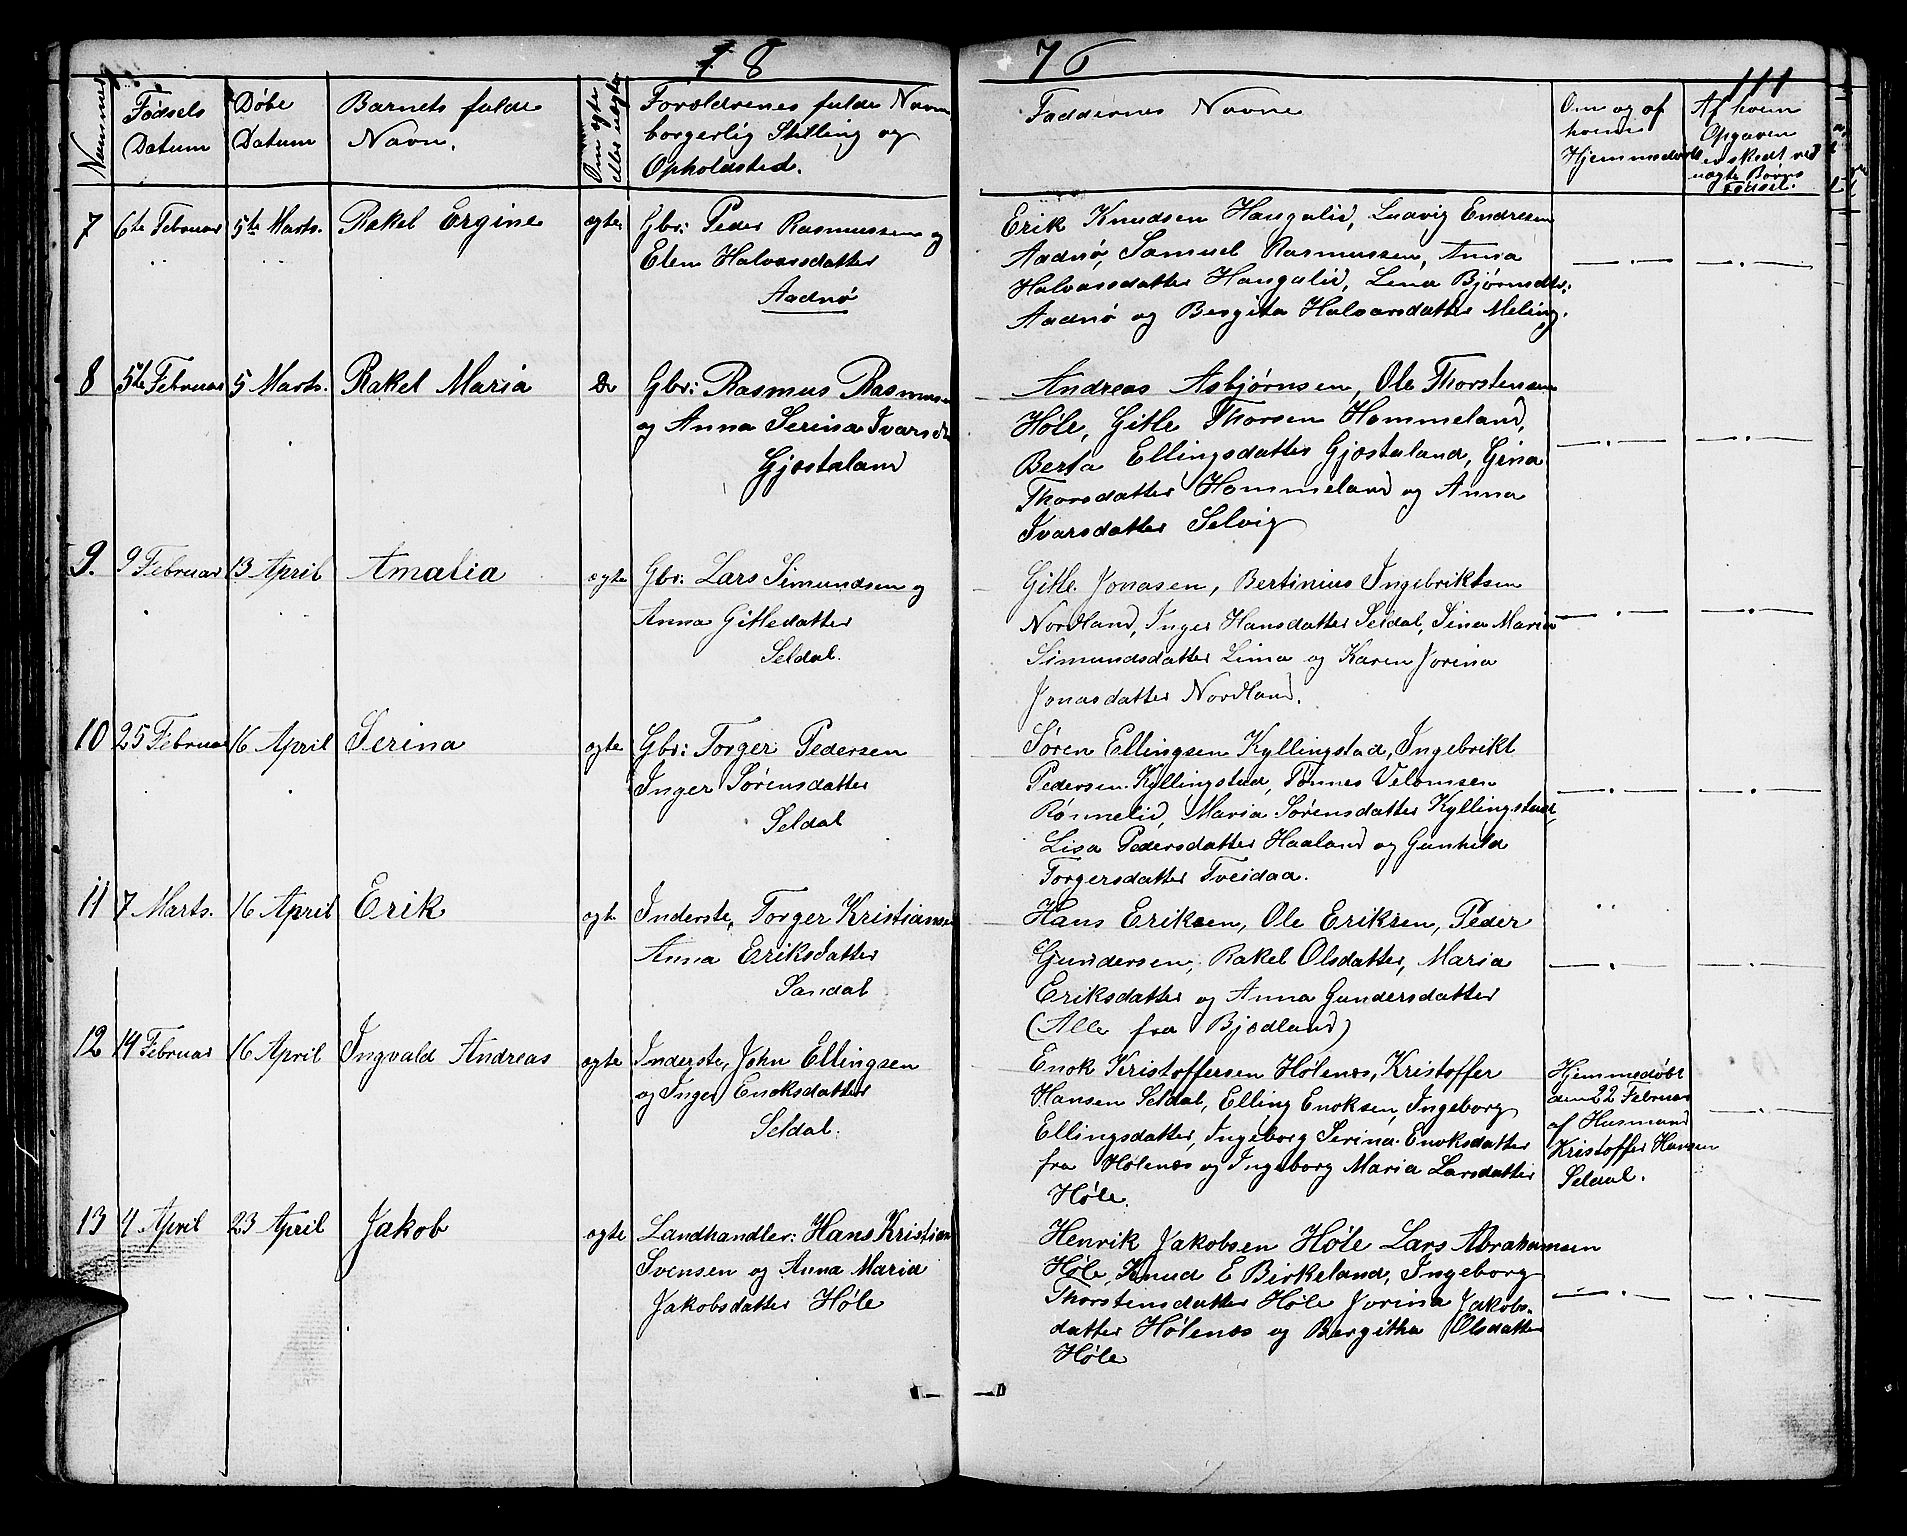 18
76
111
Nummer
Fødsels Datum
Døbe Datum
Barnets fulde Navn.
Om ægte eller uægte
Forældrenes fulde Navn
borgerlig Stilling og
Opholdsted.
Faddernes Navne
Om og af
hvem
Hjemmedøbt
Af hvem
Opgaven
er skedt ved
uægte Børns
Fødsel.
7 6te Februar 5te Marts. Rakel Ergine ægte. Gbr: Peder Rasmussen og
Elen Halvorsdatter
Aadnø
Erik Knudsen Haugalid, Ludvig Endresen
Aadnø, Samuel Rasmussen, Anna
Halvorsdatter Haugalid, Lina Bjørnsdtr:
Aadnø og Bergita Halvorsdatter Meling.
8 5te Februar 5 Marts. Rakel Maria Do Gbr: Rasmus Rasmussen
og Anna Serina Ivarsd
Gjøstaland
Andreas Asbjørnsen, Ole Thorstensen
Høle, Gitle Thorsen Hommeland,
Berta Ellingsdatter Gjøstaland, Gina
Thorsdatter Hommeland og Anna
Ivarsdatter Selvig
9. 9 Februar 13 April Amalia ægte Gbr: Lars Simundsen og
Anna Gitledatter
Seldal.
Gitle Jonasen, Bertinius Ingebriktsen
Nordland, Inger Hansdatter Seldal, Sina Maria
Simundsdatter Lima og Karen Jorina
Jonasdatter Nordland.
10 25 Februar 16 April Serina ægte Gbr: Torger Pedersen
Inger Sørensdatter
Seldal
Søren Ellingsen Kyllingstad, Ingebrikt
Pedersen Kyllingstad, Tønnes Velomsen
Rønnelid, Maria Sørensdatter Kyllingstad,
Lisa Pedersdatter Haaland og Gunhild
Torgersdatter Tveidaa.
11 7 Marts. 16 April Erik ægte Inderste, Torger Kristiansen
Anna Eriksdatter
Sandal
Hans Eriksen, Ole Eriksen, Peder
Gundersen, Rakel Olsdatter, Maria
Eriksdatter og Anna Gundersdatter
(Alle fra Bjødland)
12 14 Februar 16 April Ingvald Andreas ægte Inderste, John Ellingsen
og Inger Enoksdatter
Seldal.
Enok Kristoffersen Hølenæs, Kristoffer
Hansen Seldal, Elling Enoksen, Ingeborg
Ellingsdatter, Ingeborg Serina Enoksdatter
fra Hølenæs og Ingeborg Maria Larsdatter
Høle.
Hjemmedøbt
den 22 Februar
af Husmand
Kristoffer Hansen
Seldal.
13 4 April 23 April Jakob ægte Landhandler: Hans Kristian
Svensen og Anna Maria
Jakobsdatter Høle
Henrik Jakobsen Høle Lars Abrahamsen
Høle, Knud E Birkeland, Ingeborg
Thorstensdatter Høle Jorina Jakobs-
datter Hølenæs og Bergitha Olsdatter
Høle